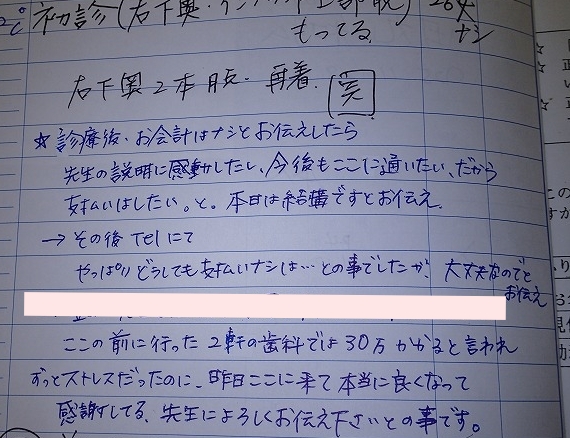 初診（右下奥・インプラント上部脱）
もってる
ナシ
右下奥2本目・再着 完
☆診療後、お会計はナシとお伝えしたら
先生の説明に感動したし、今後もここに通いたい、だから
支払いはしたい。と。本日は結構ですとお伝え
→その後Telにて
やっぱりどうしても支払いナシは…との事でしたが、大丈夫なのでと
お伝え
ここの前に行った2軒の歯科では30万かかると言われ
ずっとストレスだったのに、昨日ここに来て本当に良くなって
感謝してる、先生によろしくお伝え下さいとの事です。